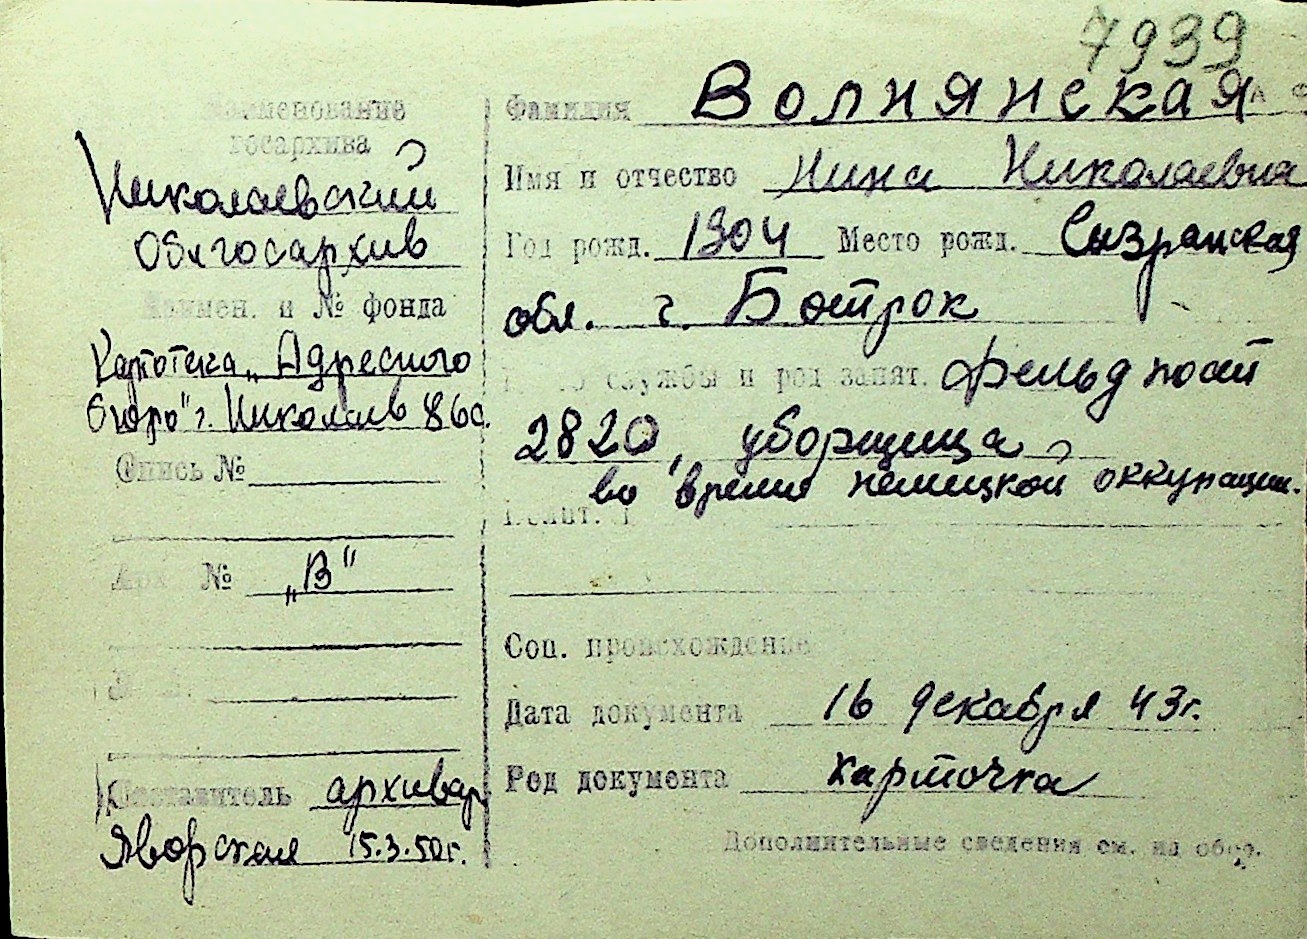 7939
Наименование
госархива
Николаевский
Облгосархив
Наимен. и № фонда
Картотека „Адресного
бюро" г. Николаев
Опись №
Арх. № „В"
Составитель архивар
Яворская 15.3.50г.
Фамилия Волнянская
Имя и отчество Нина Николаевна
Год рожд. 1904 Место рожд. Сызранская
обл. г. Ботрок
службы и род занят. Фельдпост
2820, уборщица
во время немецкой оккупации.
Соц. происхождение
Дата документа 16 декабря 43г.
Род документа карточка
Дополнительные сведения см. на обор.